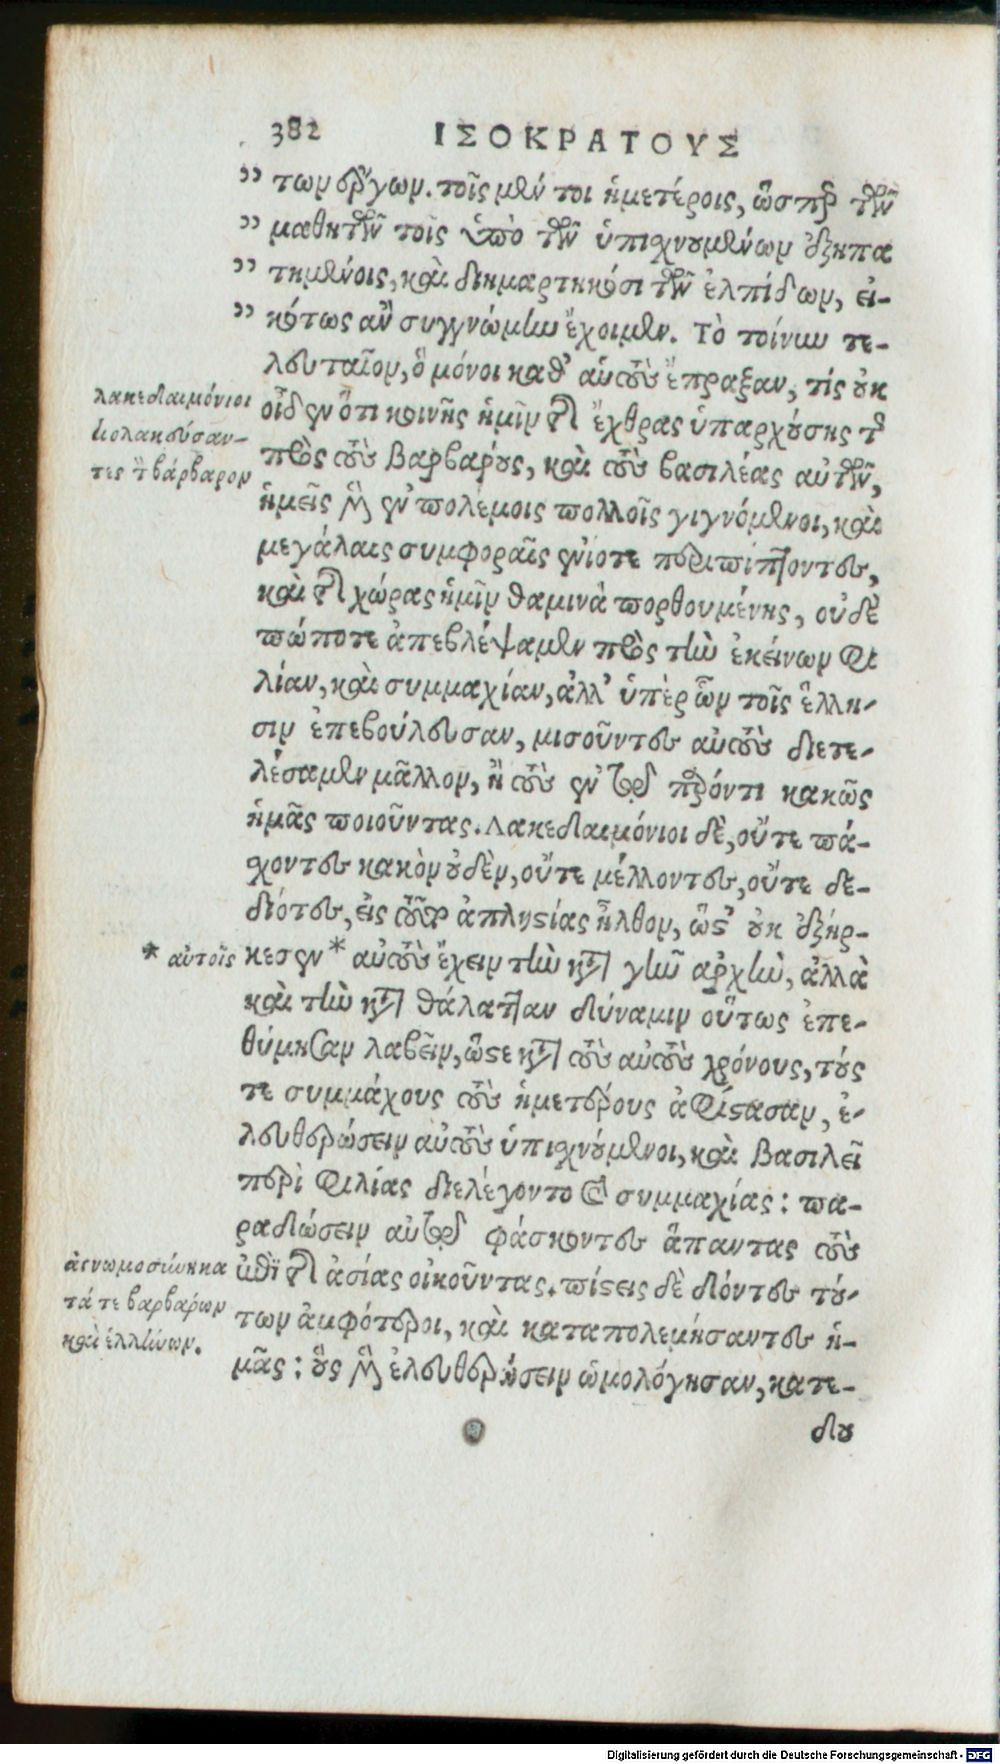 382 ΙΣΟΚΡΑΤΟΥΣ
” των ἔργων. τοῖς μέν τοι ἡμετέροις, ὥσπερ τῶν
” μαθητῶν τοῖς ὑπὸ τῶν ὑπιχνουμένων ἐξηπα
” τημένοις, καὶ διημαρτηκόσι τῶν ἐλπίδων, εἰ-
” κότως ἂν συγγνώμην ἔχοιμεν. Τὸ τοίνυν τε-
λευταῖον, ὃ μόνοι καθ’ αὑτοὺς ἔπραξαν, τίς οὐκ
λακεδαιμόνιοι
οἶδεν ὅτι κοινῆς ἡμῖν τῆς ἔχθρας ὑπαρχούσης τῆς
κολακεύσαν-
πρὸς τοὺς βαρβάρους, καὶ τοὺς βασιλέας αὐτῶν,
τες τὸν βάρβαρον
ἡμεῖς μὲν ἐν πολέμοις πολλοῖς γιγνόμενοι, καὶ
μεγάλαις συμφοραῖς ἐνίοτε περιπίπτοντες,
καὶ τῆς χώρας ἡμῖν θαμινὰ πορθουμένης, οὐδὲ
πώποτε ἀπεβλέψαμεν πρὸς τὴν ἐκείνων φι
λίαν, καὶ συμμαχίαν, ἀλλ’ ὑπὲρ ὧν τοῖς ἕλλη-
σιν ἐπεβούλευσαν, μισοῦντες αὐτοὺς διετε-
λέσαμεν μᾶλλον, ἢ τοὺς ἐν τῷ παρόντι κακῶς
ἡμᾶς ποιοῦντας. Λακεδαιμόνιοι δὲ, οὔτε πά-
χοντες κακὸν οὐδὲν, οὔτε μέλλοντες, οὔτε δε-
διότες, εἰς τοῦτ’ ἀπληστίας ἦλθον, ὥστ’ οὐκ ἐξήρ-
* αὐτοῖς
κεσεν * αὐτοὺς ἔχειν τὴν κατὰ γῆν ἀρχὴν, ἀλλὰ
καὶ τὴν κατὰ θάλατταν δύναμιν οὕτως ἐπε-
θύμησαν λαβεῖν, ὥστε κατὰ τοὺς αὐτοὺς χρόνους, τούς
τε συμμάχους τοὺς ἡμετέρους ἀφίστασαν, ἐ-
λευθερώσειν αὐτοὺς ὑπιχνούμενοι, καὶ βασιλεῖ
περὶ φιλίας διελέγοντο καὶ συμμαχίας : πα-
ραδώσειν αὐτῷ φάσκοντες ἅπαντας τοὺς
ἀγνωμοσύνη κα
ἐπὶ τῆς ἀσίας οἰκοῦντας. πίστεις δὲ δόντες τού-
τά τε βαρβάρων
των ἀμφότεροι, καὶ καταπολεμήσαντες ἡ-
καὶ ἑλλήνων.
μᾶς : οὓς μὲν ἐλευθερώσειν ὡμολόγησαν, κατε-
δου
Digitalisierung gefördert durch die Deutsche Forschungsgemeinschaft - DFG